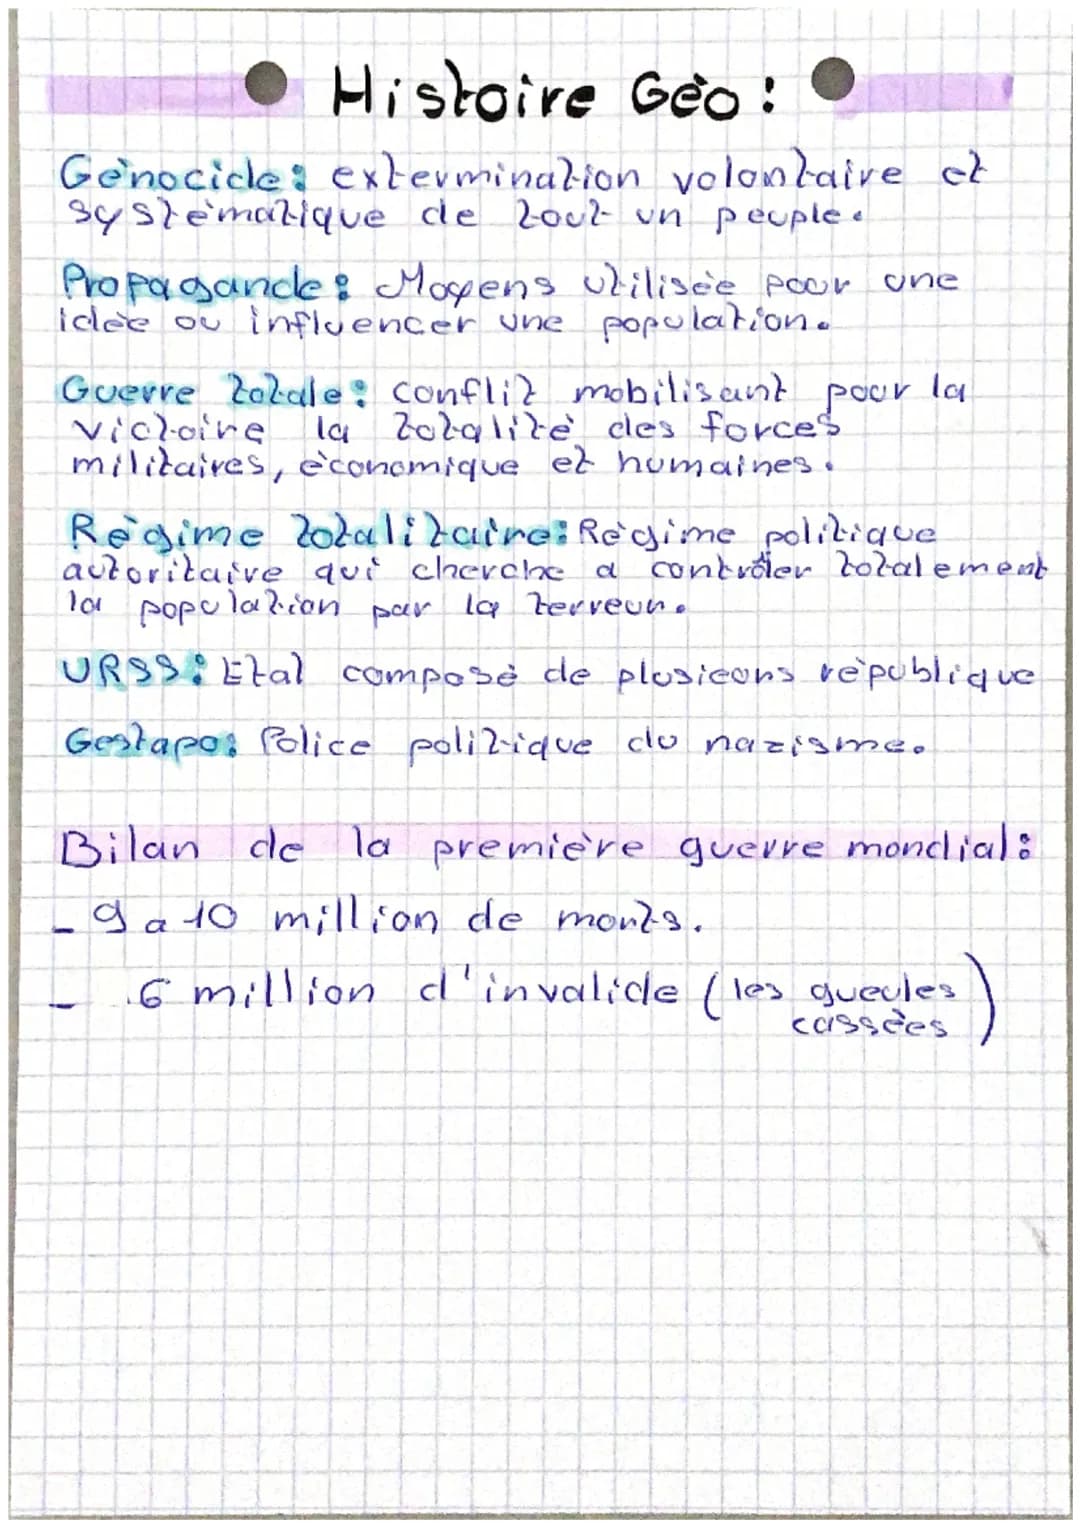 Histoire Géo :
Génocide : extermination volontaire et
systématique de tout un peuple.
Propagande : Moyens utilisée pour une
idée ou influencer une population.
Guerre totale : conflit mobilisant pour la
victoire la totalité des forces
militaires, économique et humaines.
Régime totalitaire : Régime politique
autoritaire qui cherche a contrôler totalement
la population par la terreur.
URSS : Etat composé de plusieurs république
Gestapo : Police politique du nazisme.
Bilan de la première guerre mondial :
- 9 a 10 million de morts.
- 6 million d'invalide (les gueules
cassées)